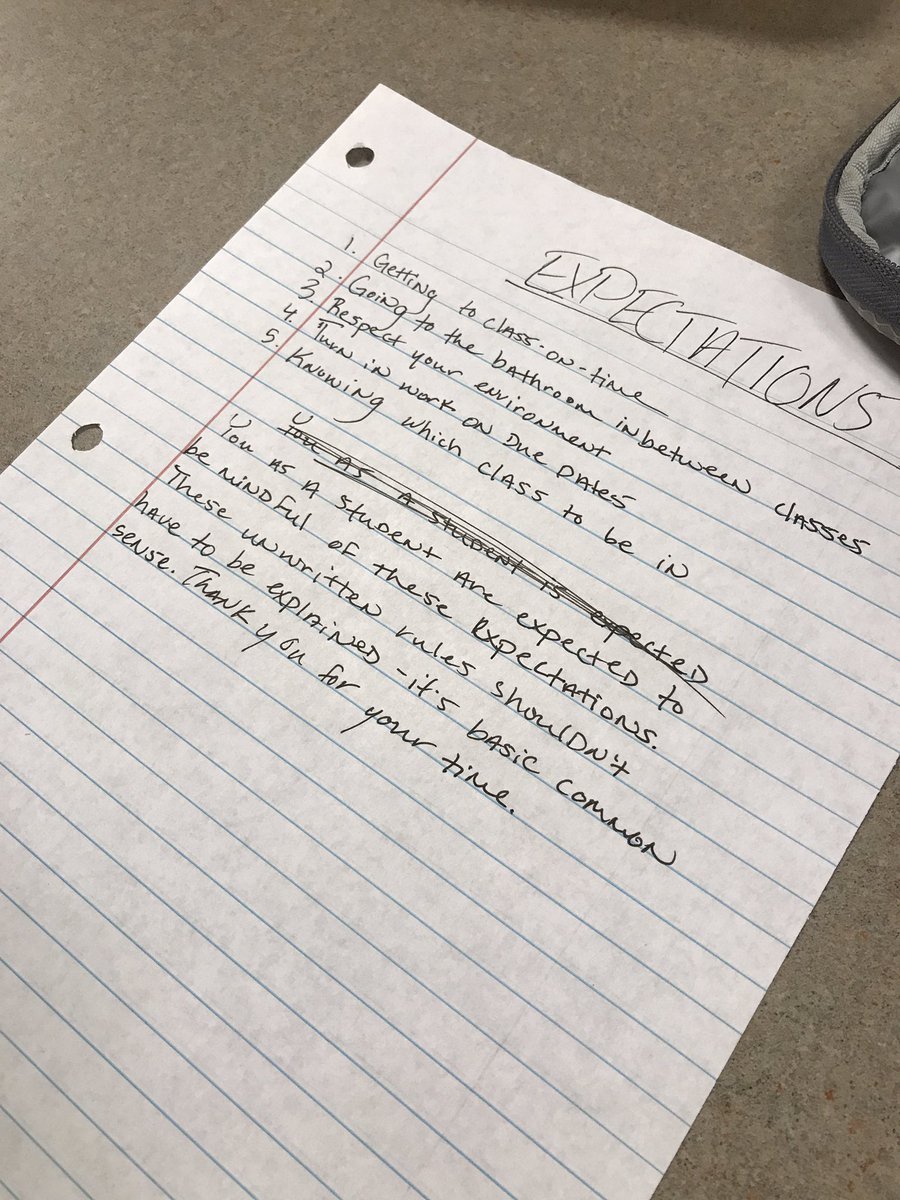 EXPECTATIONS
1. Getting to class on-time
2. Going to the bathroom inbetween classes
3. Respect your environment
4. Turn in work on Due Dates
5. Knowing which class to be in
You as a student is expected
You as a student are expected to
be mindful of these expectations.
These unwritten rules shouldn't
have to be explained - it's basic common
sense. Thank you for
your time.